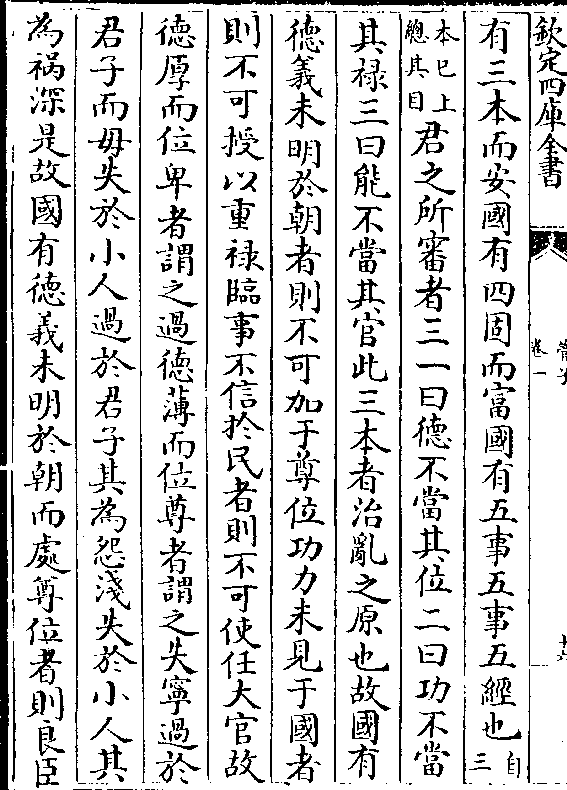 欽定四庫全書
管子
卷一
十六
有三本而安國有四固而富國有五事五事五經也自三
本已上總其目君之所審者三一曰德不當其位二曰功不當
其祿三曰能不當其官此三本者治亂之原也故國有
德義未明於朝者則不可加于尊位功力未見于國者
則不可授以重祿臨事不信於民者則不可使任大官故
德厚而位卑者謂之過德薄而位尊者謂之失寧過於
君子而毋失於小人過於君子其為怨淺失於小人其
為禍深是故國有德義未明於朝而處尊位者則良臣